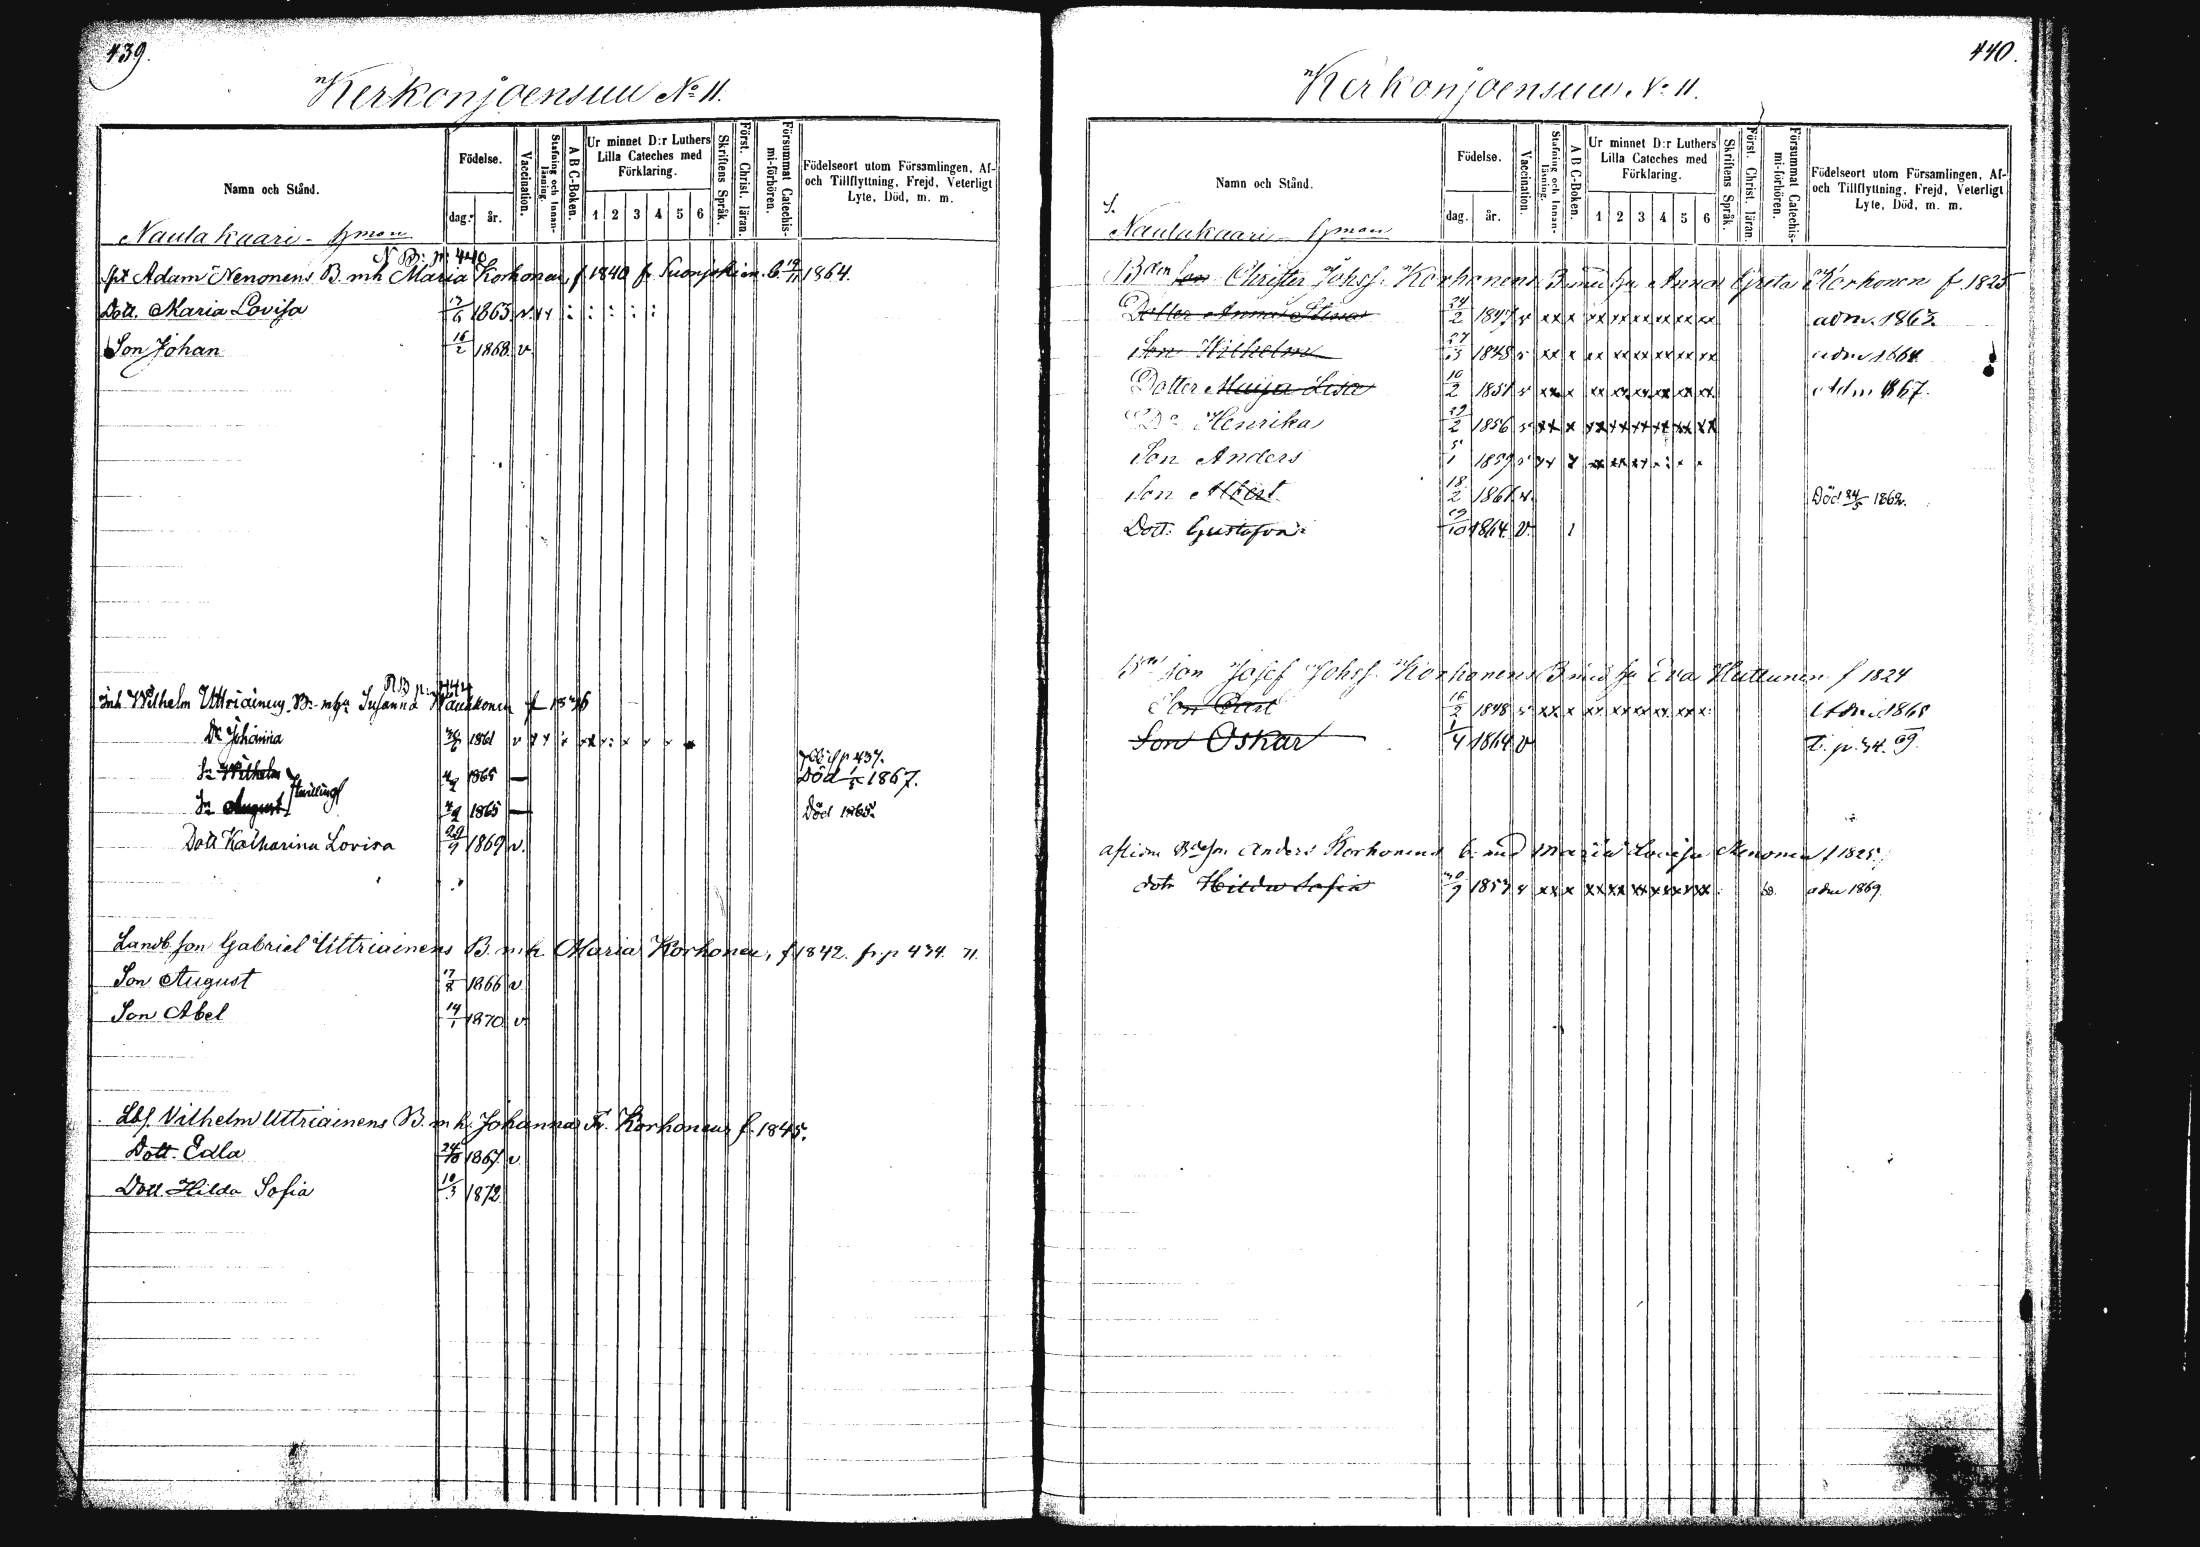 439.
Kerkonjoensuu No 11.
Namn och Stånd.
Födelse.
dag.
år.
Vaccination.
Stafning och Innan-läsning.
A B C-Boken.
Ur minnet D:r Luthers Lilla Cateches med Förklaring.
1 2 3 4 5 6
Skriftens Språk.
Först. Christ. läran.
Försummat Catechis-mi-förhören.
Födelseort utom Församlingen, Af- och Tillflyttning, Frejd, Veterligt Lyte, Död, m. m.
Naulakaari - hman
N B: p: 440
Adam Nenonens B. mh Maria Korhonen, f 1840 fr Suonjokien. b. 19/11 1864.
Dott. Maria Lovisa 1863. v.
Son Johan 16/2 1868. v.
NB p: 442
inh. Wilhelm Uttriainens B. m h Susanna f 1836
Dr Johanna 1861 v
Sn Wilhelm 4/2 1865 — Död 1867.
tvillingf
Sn August 4/2 1865 — Död 1865.
Dott Katharina Lovisa 29/9 1869 v.
Landb. son Gabriel Uttriainens B. m h. Maria Korhonen, f. 1842. fr. p 434. 71.
Son August 17/8 1866 v
Son Abel 14/1 1870 v.
Lbs. Vilhelm Uttriainens B. m h. Johanna Fr. Korhonen f. 1845.
Dott. Edla 24/10 1867. v.
Dott. Hilda Sofia 10/3 1872
440.
Kerkonjoensuu No 11.
Namn och Stånd.
Födelse.
dag.
år.
Vaccination.
Stafning och Innan-läsning.
A B C-Boken.
Ur minnet D:r Luthers Lilla Cateches med Förklaring.
1 2 3 4 5 6
Skriftens Språk.
Först. Christ. läran.
Försummat Catechis-mi-förhören.
Födelseort utom Församlingen, Af- och Tillflyttning, Frejd, Veterligt Lyte, Död, m. m.
Naulakaari - hman
Bden Son Christer Johss. Korhonens B. med hu Anna Greta Korhonen f. 1825
Dotter Anna Stina 24/2 1847 v xx x xx xx xx xx xx xx adm. 1863.
Son Wilhelm 1848 v xx x xx xx xx xx xx xx adm 1864
Dotter Maija Lisa 10/2 1851 v xx x xx xx xx xx xx xx Adm 1867.
Do Henrika 29/2 1856 v xx x xx xx xx xx xx xx
Son Anders 5/1 1859 v
Son Albert 18/2 1861 v. Död 24/5 1862.
Dott. Gustafva 19/10 1864. v.
Bden Son Josef Johss. Korhonens B med hu Eva Huttunen f 1824
Son Carl 16/2 1848 v xx x xx xx xx xx xx x Adm 1865
Son Oskar 1/4 1864 v T. p. 34. 69.
aflidne Bdeson Anders Korhonens b. med Maria Lovisa Nenonen f 1825.
dotr Hilda Sofia 30/9 1853 v xx x xx xx xx xx xx xx adm 1869.